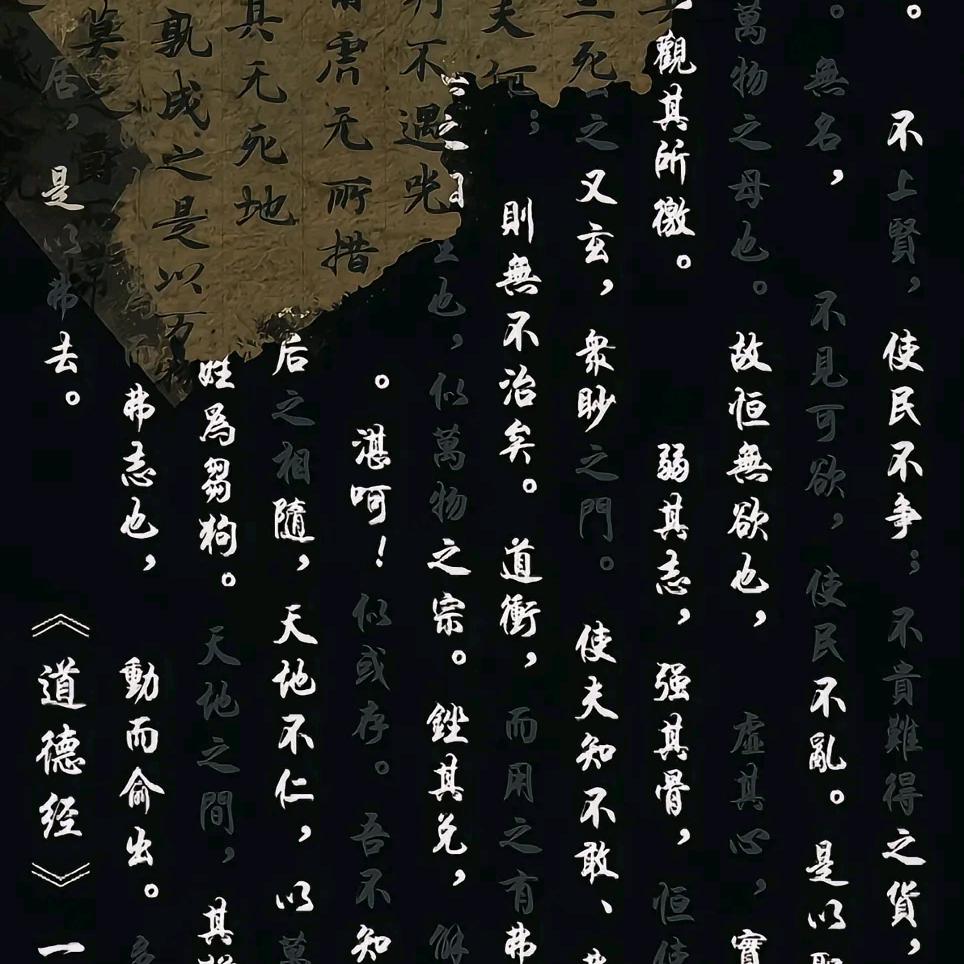 。不上賢,使民不争;不貴難得之貨,
。無名,不見可欲,使民不亂。是以
萬物之母也。故恒無欲也,虛其心,實
觀其所徼。弱其志,强其骨,恒使
之又玄,衆眇之門。使夫知不敢、
則無不治矣。道衝,而用之有弗
也,似萬物之宗。銼其兑,解
。湛呵!似或存。吾不知
后之相隨,天地不仁,以萬
姓爲芻狗。天地之間,其
弗志也,動而俞出。
居,是以弗去。《道德经》一
死
夫何
不遇兕
虎无所措
其无死地
孰成之是以万
莫之